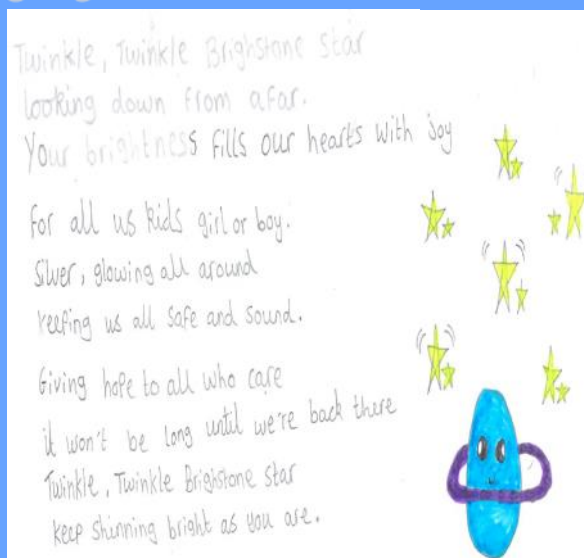 Twinkle, Twinkle Brighstone Star
looking down from afar.
Your brightness fills our hearts with joy
for all us kids girl or boy.
Silver, glowing all around
keeping us all safe and sound.
Giving hope to all who care
it won't be long until we're back there
Twinkle, Twinkle Brighstone star
keep shinning bright as you are.